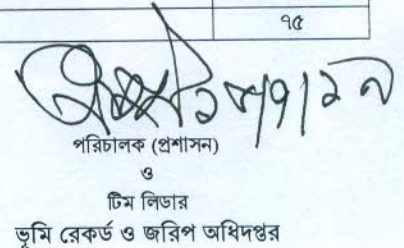 ৭৫
পরিচালক (প্রশাসন)
ও
টিম লিডার
ভূমি রেকর্ড ও জরিপ অধিদপ্তর